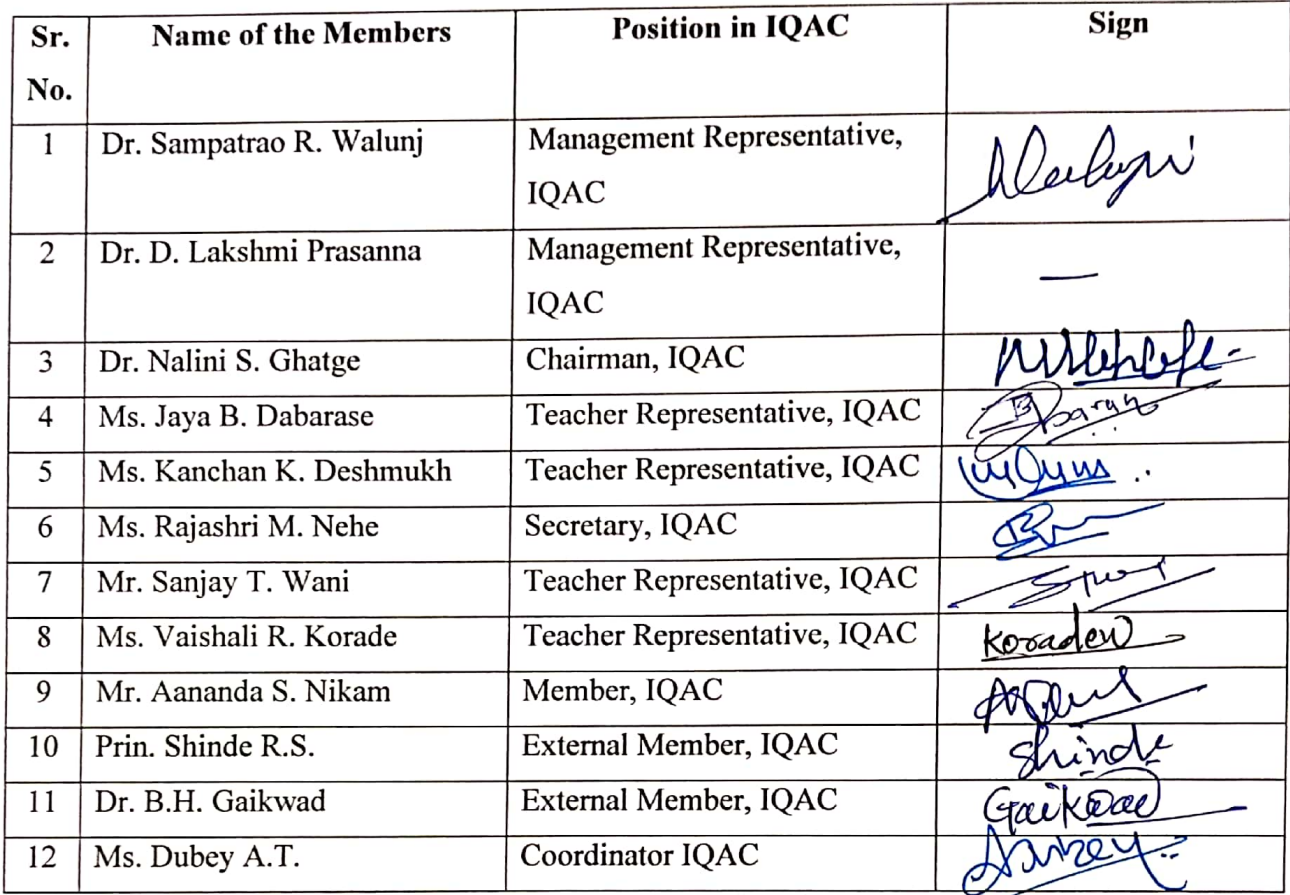 Sr. Name of the Members Position in IQAC Sign
No.
1 Dr. Sampatrao R. Walunj Management Representative,
IQAC
2 Dr. D. Lakshmi Prasanna Management Representative, —
IQAC
3 Dr. Nalini S. Ghatge Chairman, IQAC
4 Ms. Jaya B. Dabarase Teacher Representative, IQAC
5 Ms. Kanchan K. Deshmukh Teacher Representative, IQAC
6 Ms. Rajashri M. Nehe Secretary, IQAC
7 Mr. Sanjay T. Wani Teacher Representative, IQAC
8 Ms. Vaishali R. Korade Teacher Representative, IQAC
9 Mr. Aananda S. Nikam Member, IQAC
10 Prin. Shinde R.S. External Member, IQAC Shinde
11 Dr. B.H. Gaikwad External Member, IQAC Gaikwad
12 Ms. Dubey A.T. Coordinator IQAC